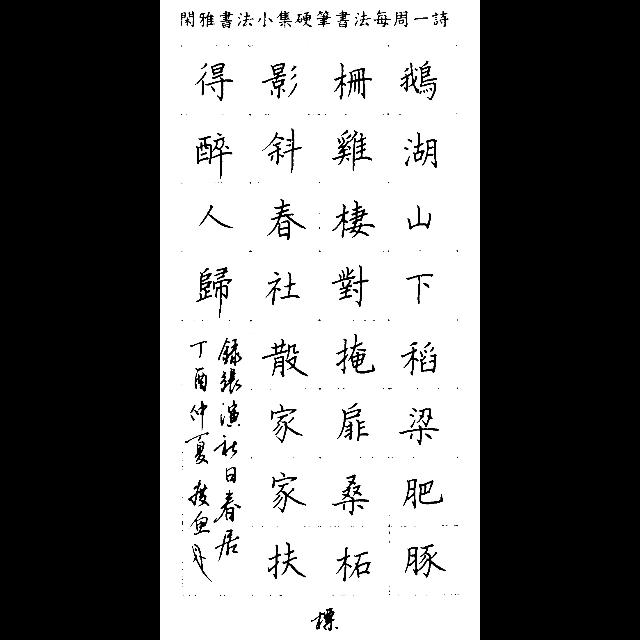 閑雅書法小集硬筆書法每周一詩
鵝湖山下稻梁肥豚
柵雞棲對掩扉桑柘
影斜春社散家家扶
得醉人歸
録張演社日春居
丁酉仲夏
標